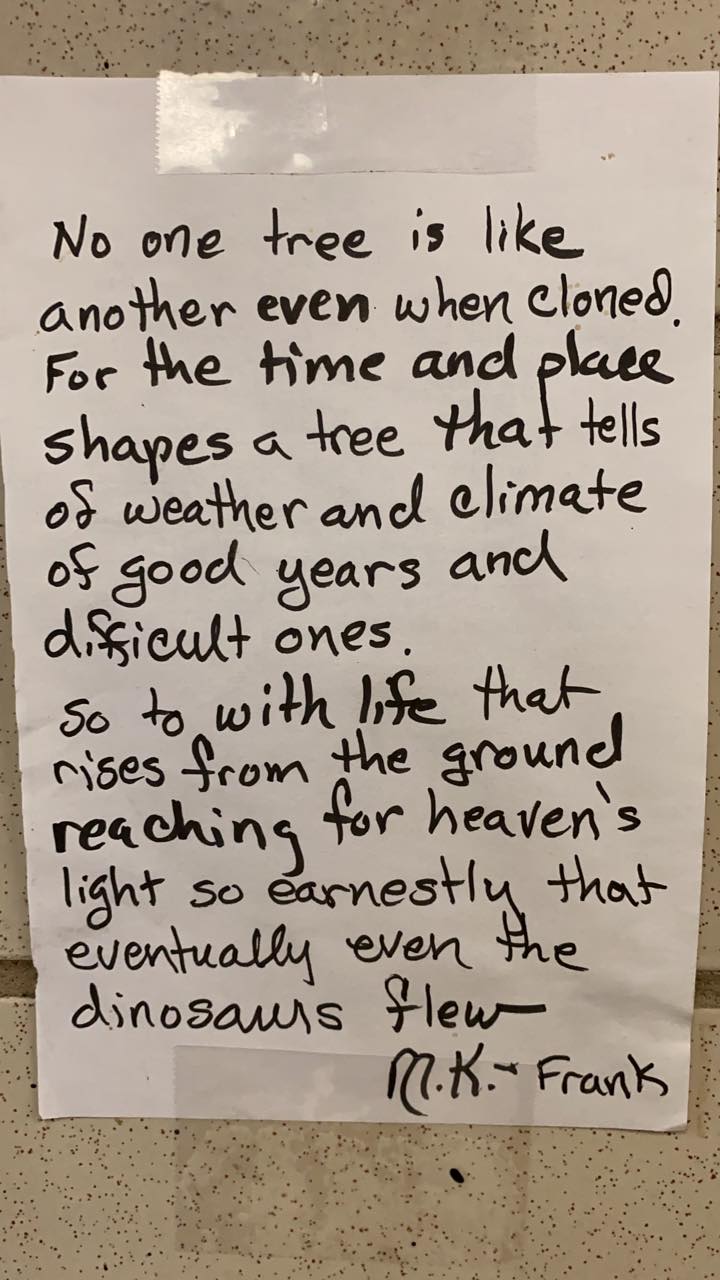 No one tree is like
another even when cloned.
For the time and place
shapes a tree that tells
of weather and climate
of good years and
difficult ones.
So to with life that
rises from the ground
reaching for heaven's
light so earnestly that
eventually even the
dinosaurs flew—
M.K.- Frank